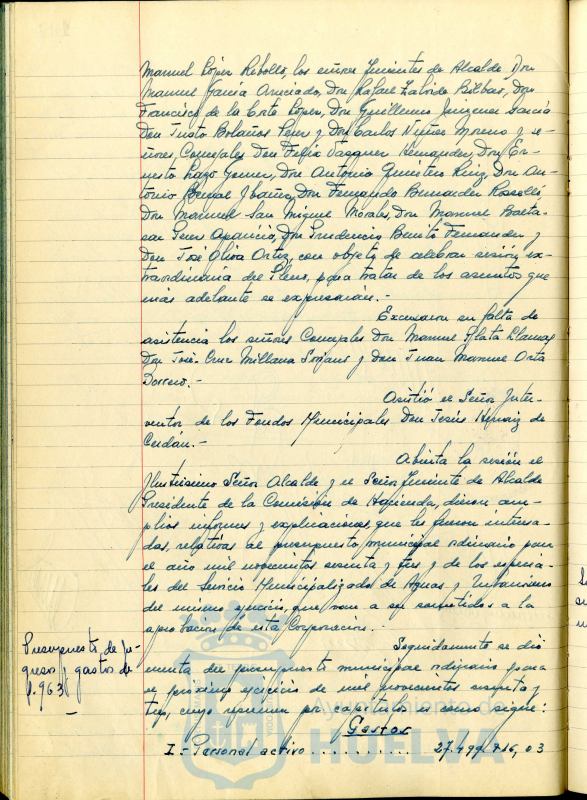 Manuel López Rebollo, los señores Tenientes de Alcalde Don
Manuel García Anciado, Don Rafael Zalvide Bilbao, Don
Francisco de la Corte López, Don Guillermo Jiménez García
Don Justo Bolaños Pérez y Don Carlos Núñez Moreno y se-
ñores, Concejales Don Félix Vázquez Hernández, Don Er-
nesto Lazo Gómez, Don Antonio Quintero Ruiz, Don An-
tonio Bernal Ibáñez, Don Fernando Bermúdez Rosselló
Don Manuel San Miguel Morales, Don Manuel Balta-
sar Pérez Aparicio, Don Prudencio Benito Fernández y
Don José Oliva Ortiz, con objeto de celebrar sesión ex-
traordinaria del Pleno, para tratar de los asuntos que
más adelante se expresarán.-
Excusaron su falta de
asistencia los señores Concejales Don Manuel Plata Llamas
Don José-Cruz Millana y don Juan Manuel Orta
Borrero.-
Asistió el Señor Inter-
ventor de los Fondos Municipales Don Jesús de
Cerdán.-
Abierta la sesión el
Ilustrísimo Señor Alcalde y el Señor Teniente de Alcalde
Presidente de la Comisión de Hacienda, dieron am-
plios informes y explicaciones, que les fueron interesa-
das, relativas al presupuesto municipal ordinario para
el año mil novecientos sesenta y tres y de los especia-
les del Servicio Municipalizado de Aguas y Urbanismo
del mismo ejercicio, que van a ser sometidos a la
aprobación de esta Corporación.-
Presupuesto de In-
greso y gastos de
1.963
—
Seguidamente se dió
cuenta del presupuesto municipal ordinario para
el próximo ejercicio de mil novecientos sesenta y
tres, cuyo resumen por capítulos es como sigue:
Gastos
I.- Personal activo . . . . . . . . . . 27.499.716,03
Ayuntamiento de
HUELVA